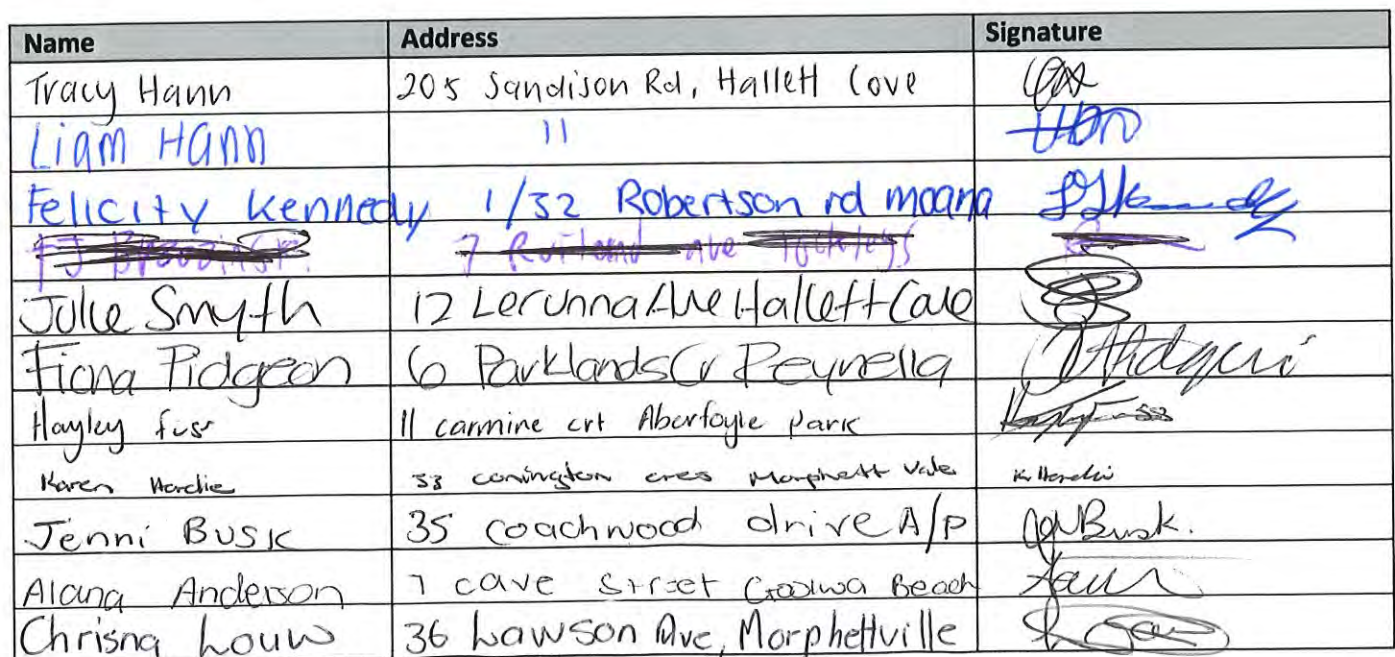 Name Address Signature
Tracy Hann 205 Sandison Rd, Hallett Cove
Liam Hann 11
Felicity Kennedy 1/32 Robertson rd moana
7 ave
Julie Smyth 12 Lerunna Ave Hallett Cove
Fiona Pidgeon 6 Parklands Cr Reynella
Hayley 11 carmine crt Aberfoyle park
Karen Hardie 53 conington cres Morphett Vale K Hardie
Jenni Busk 35 coachwood drive A/P Busk.
Alana Anderson 7 cave street Goolwa Beach
Chrisna Louw 36 Lawson Ave, Morphettville